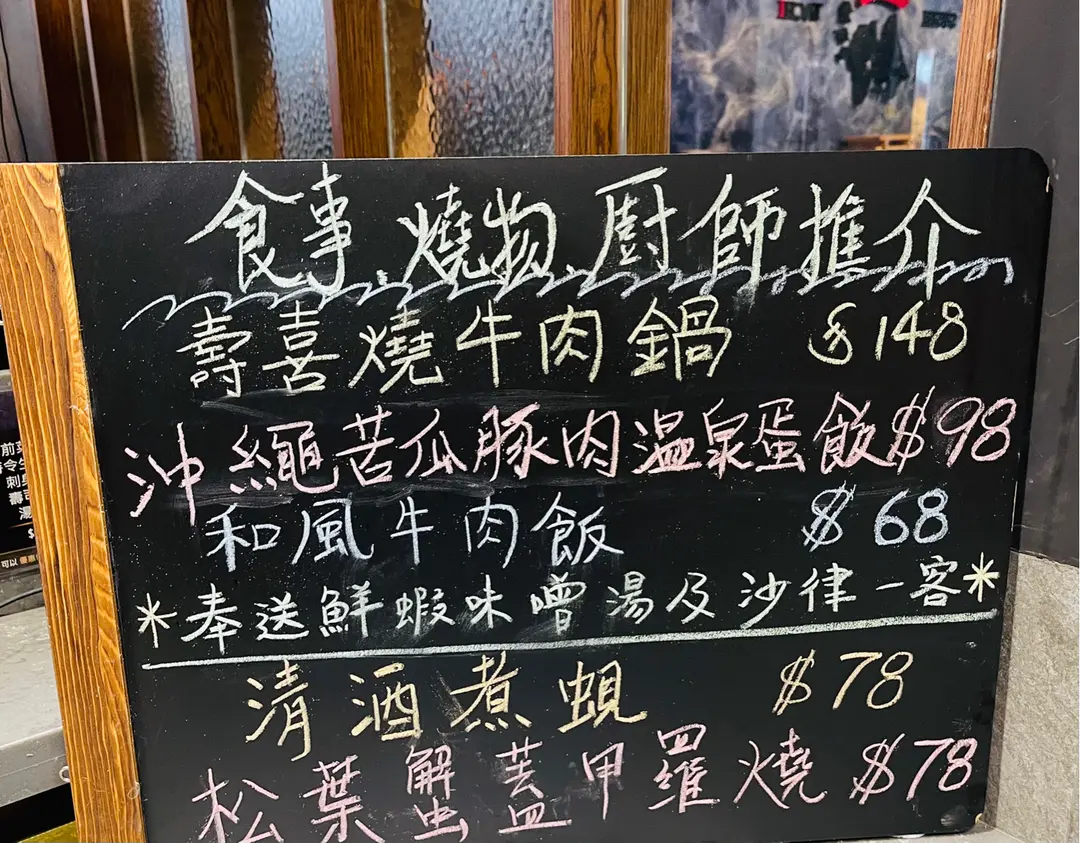 食事.燒物.廚師推介
壽喜燒牛肉鍋 $148
沖繩苦瓜豚肉温泉蛋飯$98
和風牛肉飯 $68
*奉送鮮蝦味噌湯及沙律一客*
清酒煮蜆 $78
松葉蟹蓋甲羅燒 $78
前菜
刺身
壽司
湯
可以